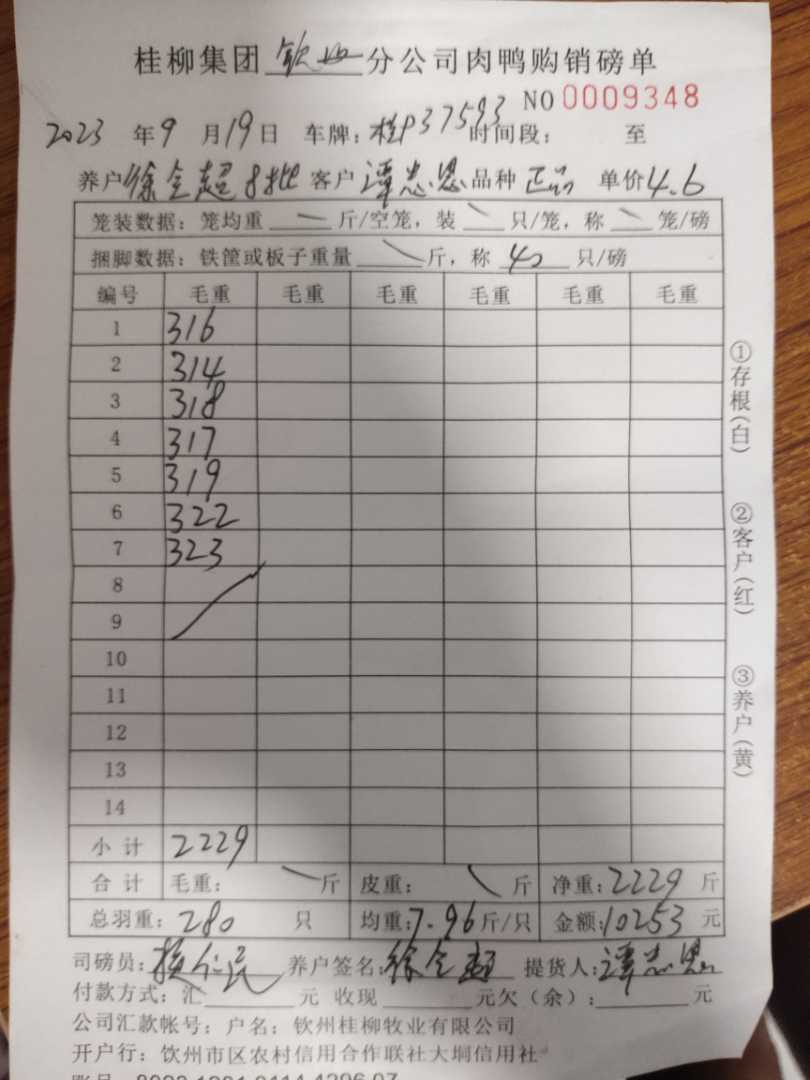 桂柳集团 钦州 分公司肉鸭购销磅单
NO 0009348
2023 年 9 月 19 日 车牌: 桂P37593 时间段: 至
养户 徐全超 8批 客户 谭忠恩 品种 正品 单价 4.6
笼装数据: 笼均重 斤/空笼, 装 只/笼, 称 笼/磅
捆脚数据: 铁筐或板子重量 斤, 称 40 只/磅
编号 毛重 毛重 毛重 毛重 毛重 毛重
1 316
2 314
3 318
4 317
5 319
6 322
7 323
8
9
10
11
12
13
14
小计 2229
合计 毛重: 斤 皮重: 斤 净重: 2229 斤
总羽重: 280 只 均重: 7.96 斤/只 金额: 10253 元
司磅员: 养户签名: 徐全超 提货人: 谭忠恩
付款方式: 汇 元 收现 元欠(余): 元
公司汇款帐号: 户名: 钦州桂柳牧业有限公司
开户行: 钦州市区农村信用合作联社大垌信用社
①存根(白)
②客户(红)
③养户(黄)